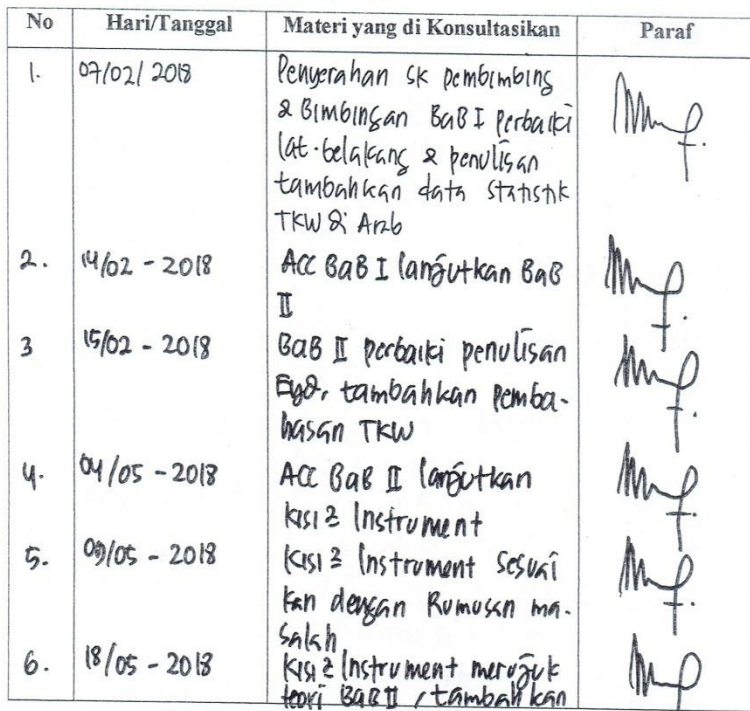 No Hari/Tanggal Materi yang di Konsultasikan Paraf
1. 07/02/2018 Penyerahan SK pembimbing
& Bimbingan BaB I perbaiki
lat.belakang & penulisan
tambahkan data statistik
TKW di Arab
2. 14/02 - 2018 ACC BaB I lanjutkan BaB
II
3 15/02 - 2018 BaB II perbaiki penulisan
Eyd, tambahkan pemba-
hasan TKW
4. 04/05 - 2018 ACC BaB II lanjutkan
kisi2 Instrument
5. 09/05 - 2018 kisi2 Instrument sesuai
kan dengan Rumusan ma-
salah
6. 18/05 - 2018 kisi2 Instrument merujuk
teori BaB II, tambahkan